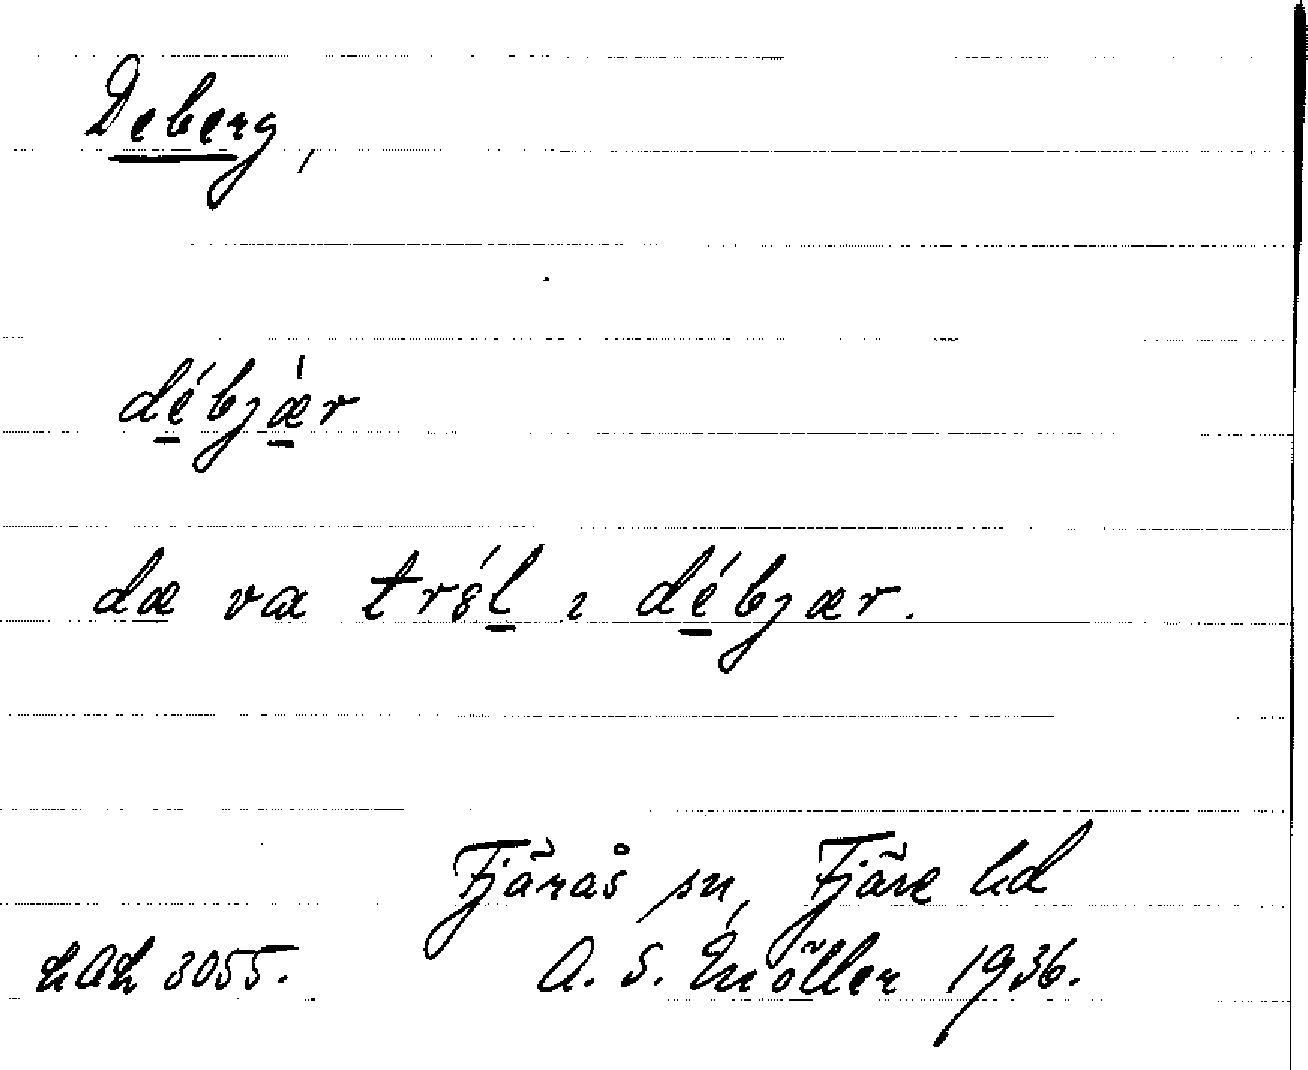 Deberg,
débjær
dæ va tröl ɩ débjær.
Fjärås sn, Fjäre hd
LAL 3055. A. S. Enöller 1936.